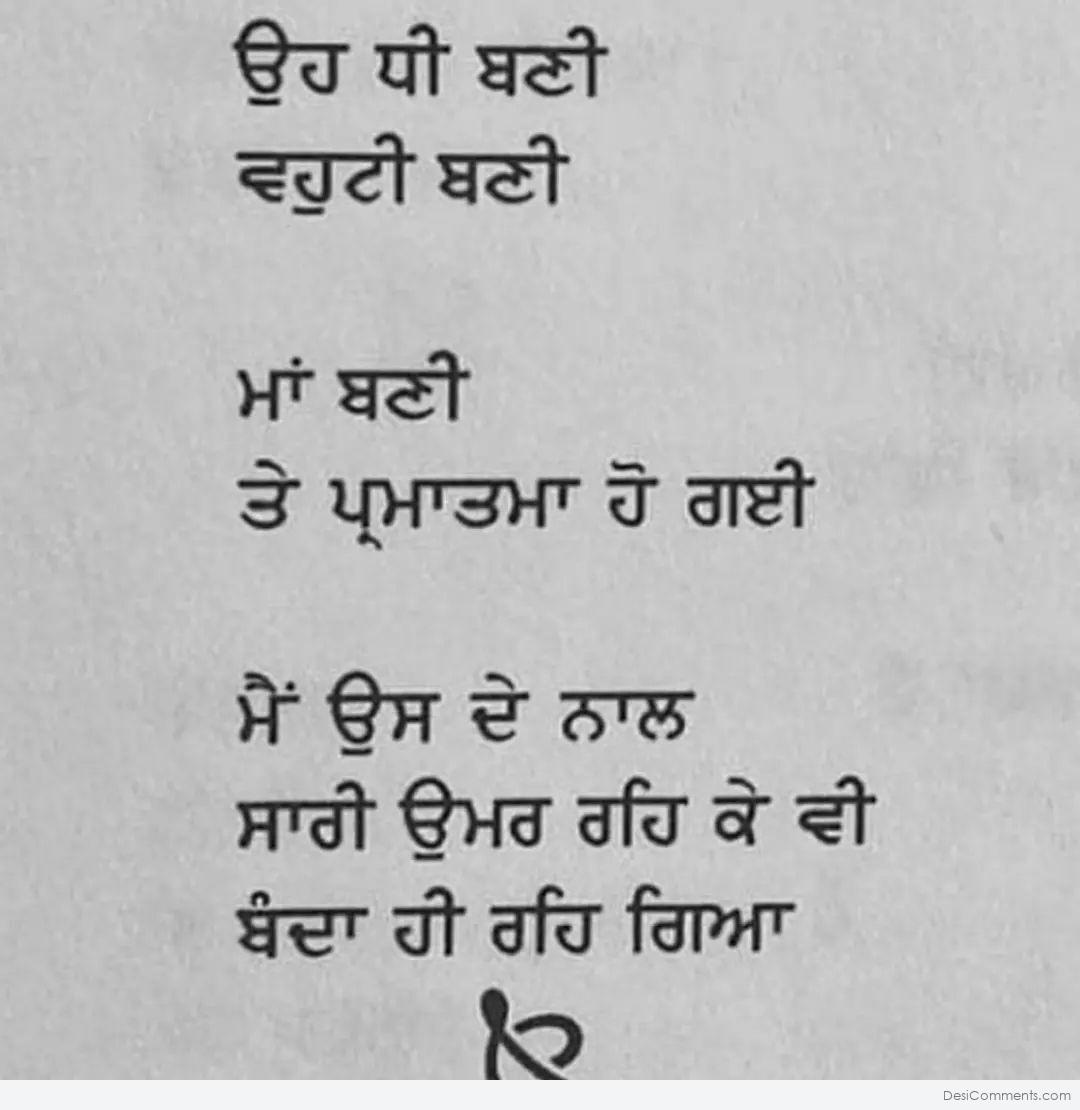 ਉਹ ਧੀ ਬਣੀ
ਵਹੁਟੀ ਬਣੀ
ਮਾਂ ਬਣੀ
ਤੇ ਪ੍ਰਮਾਤਮਾ ਹੋ ਗਈ
ਮੈਂ ਉਸ ਦੇ ਨਾਲ
ਸਾਰੀ ਉਮਰ ਰਹਿ ਕੇ ਵੀ
ਬੰਦਾ ਹੀ ਰਹਿ ਗਿਆ
DesiComments.com